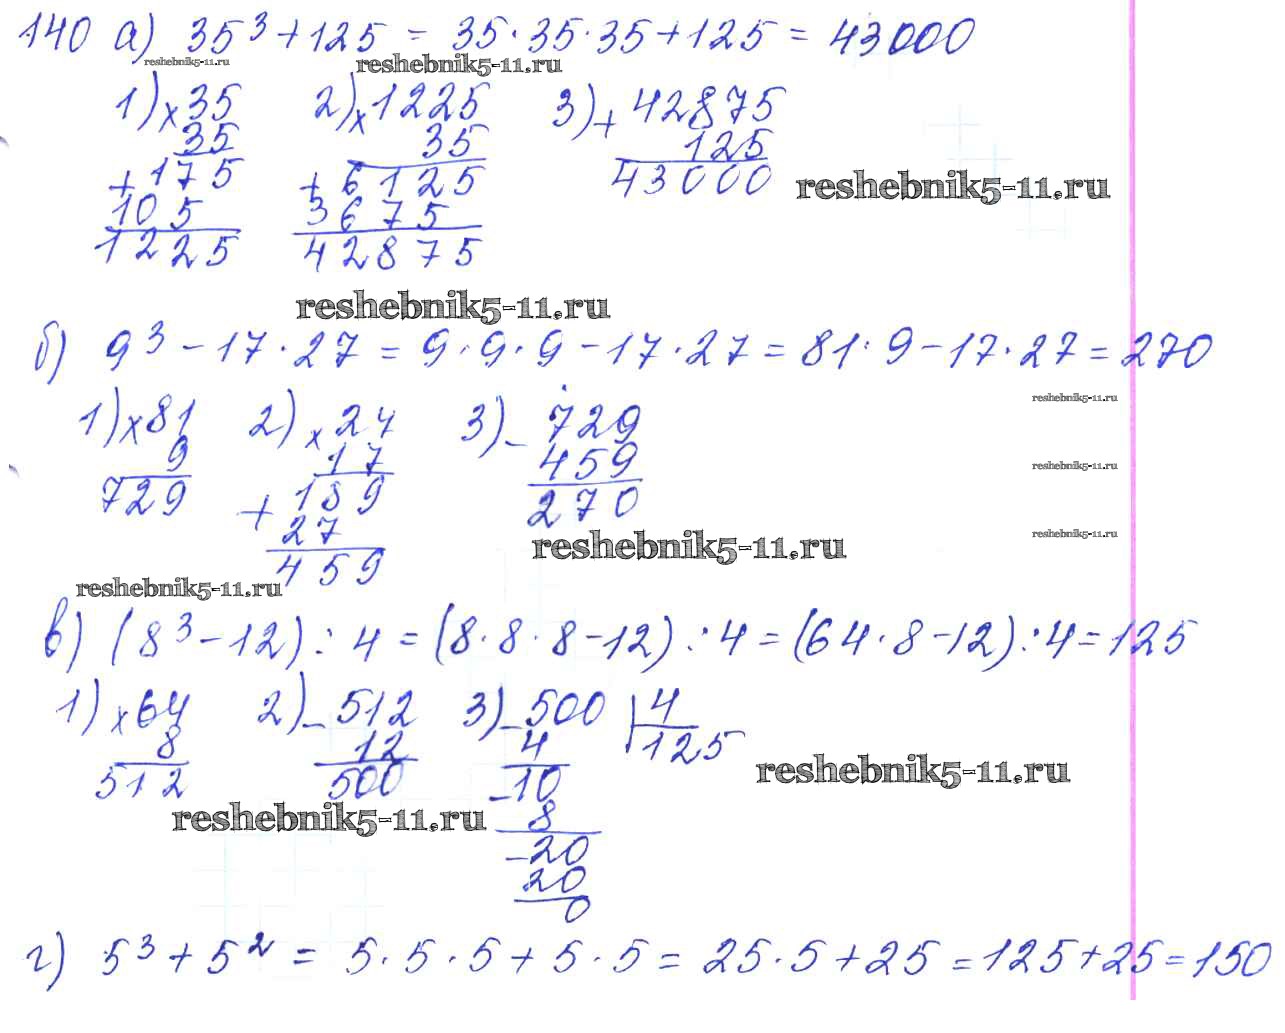 140 а) 35³+125 = 35·35·35+125 = 43000
reshebnik5-11.ru reshebnik5-11.ru
1) ×35 2) ×1225 3) + 42875
35 35 125
+175 +6125 43000
105 3675 reshebnik5-11.ru
1225 42875
reshebnik5-11.ru
б) 9³-17·27 = 9·9·9-17·27 = 81·9-17·27 = 270
reshebnik5-11.ru
1) ×81 2) ×27 3) - 729
9 17 459
729 +189 270
27
459
reshebnik5-11.ru
reshebnik5-11.ru
reshebnik5-11.ru
reshebnik5-11.ru
в) (8³-12):4 = (8·8·8-12):4 = (64·8-12):4 = 125
1) ×64 2) -512 3) -500 4
8 12 4 125
512 500 -10
8
-20
20
0
reshebnik5-11.ru
reshebnik5-11.ru
г) 5³+5² = 5·5·5+5·5 = 25·5+25 = 125+25 = 150